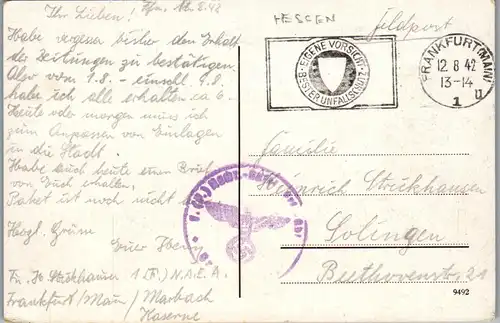 Ihr Lieben!
Habe vergessen bisher den Inhalt
der Zeitungen zu bestätigen.
Also vom 1.8. - einschl. 9.8.
habe ich alle erhalten
Heute oder morgen muss ich
zum Anpassen von Einlagen
in die Stadt.
Habe auch heute einen Brief
von Euch erhalten.
Paket ist noch nicht
Herzl. Grüße
Euer
HESSEN
Feldpost
EIGENE VORSICHT
BESTER UNFALLSCHUTZ
FRANKFURT (MAIN)
12.8.42
13-14
1
Familie
Heinrich Strickhausen
Solingen
Beethovenstr. 21
N.A.E.A.
Frankfurt/Main/ Marbach
Kaserne
9492